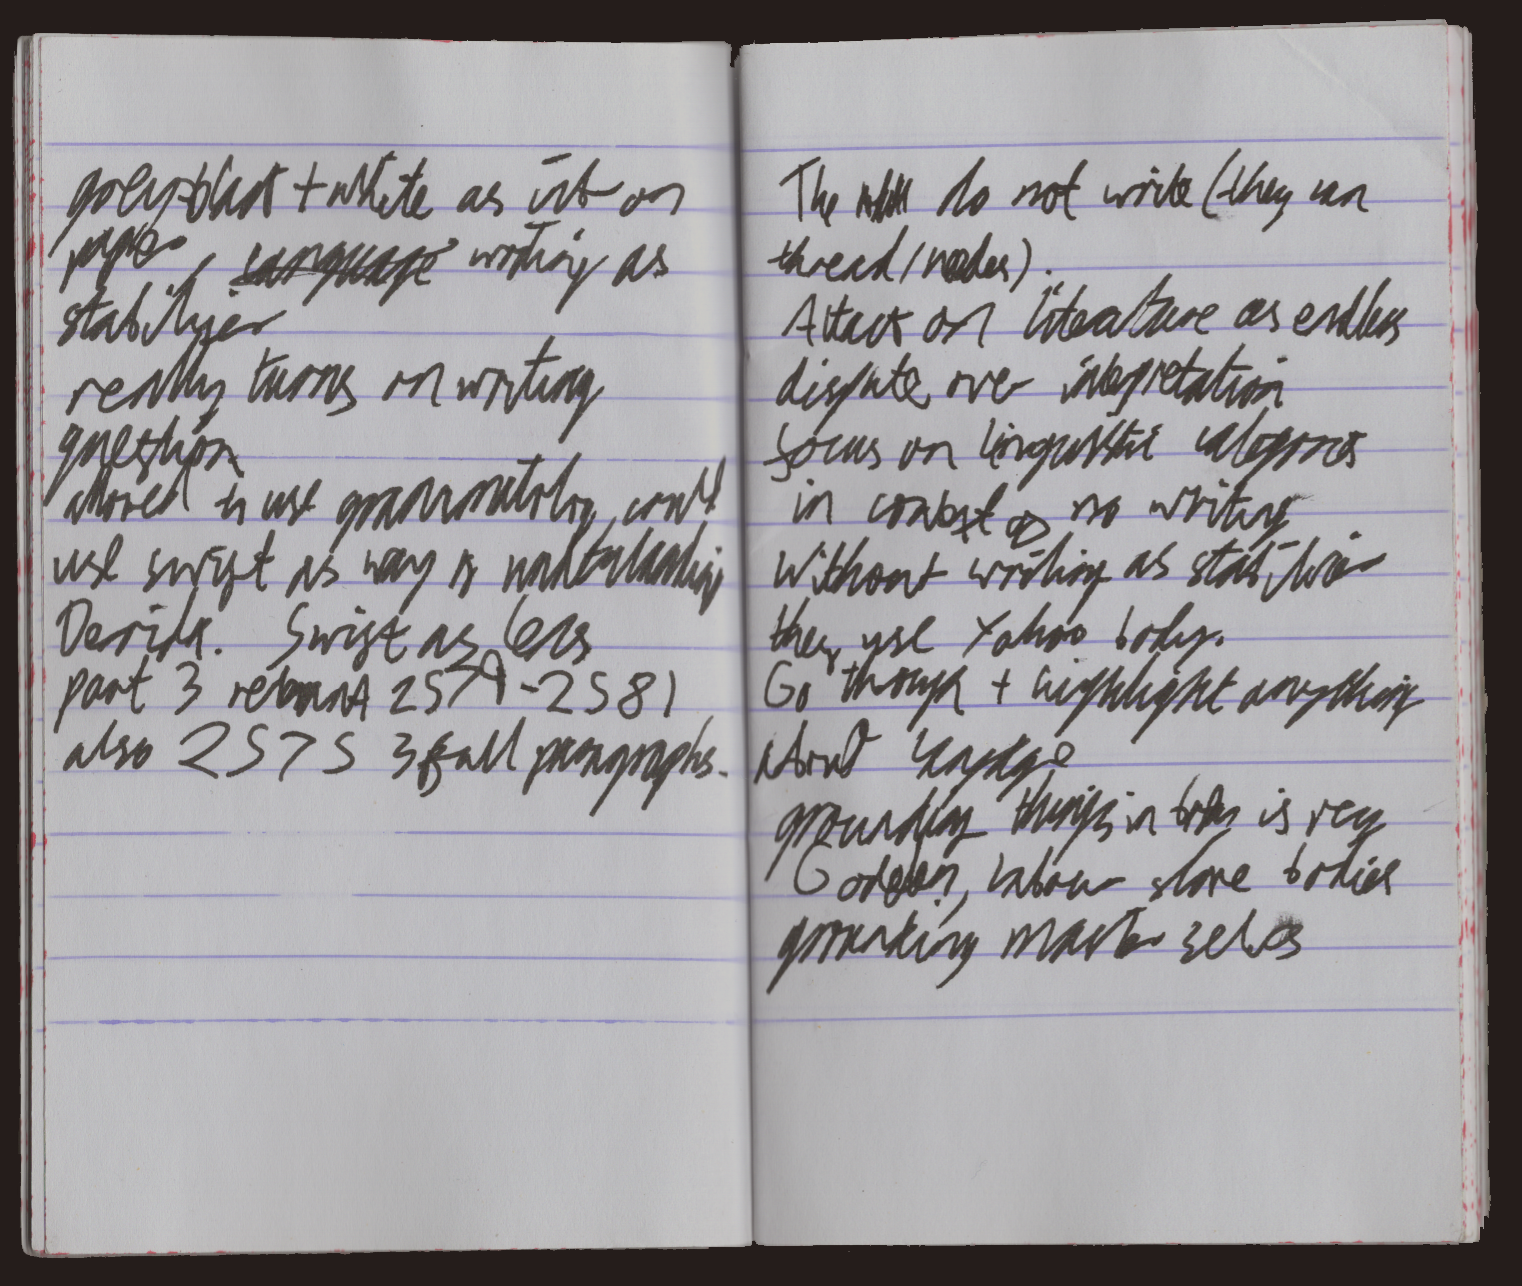 grey black + white as ink on
paper, language writing as
stabilizer
really turns on writing
question
allowed to use grammatology, could
use swift as way of understanding
Derrida. Swift as lens
part 3 relevant 2579-2581
also 2575 3 full paragraphs.
The do not write (they can
thread/needles).
Attack on literature as endless
dispute over interpretation
focus on linguistic categories
in context as no writing
without writing as stabilizer
they use Yahoo body.
Go through + highlight anything
about language
grounding things in body is very
labour slave bodies
grounding master selves